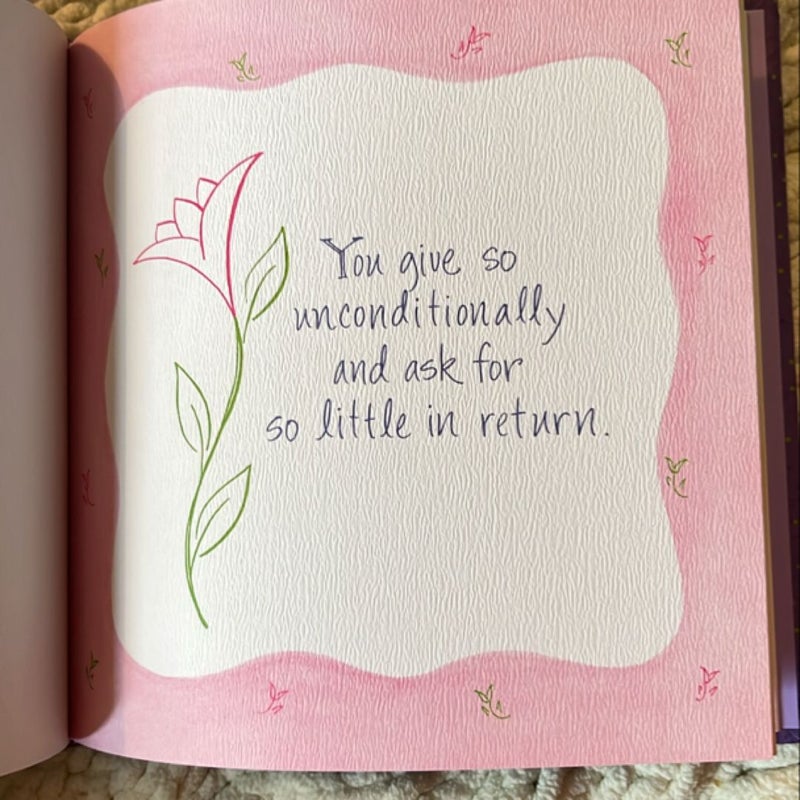 You give so
unconditionally
and ask for
so little in return.